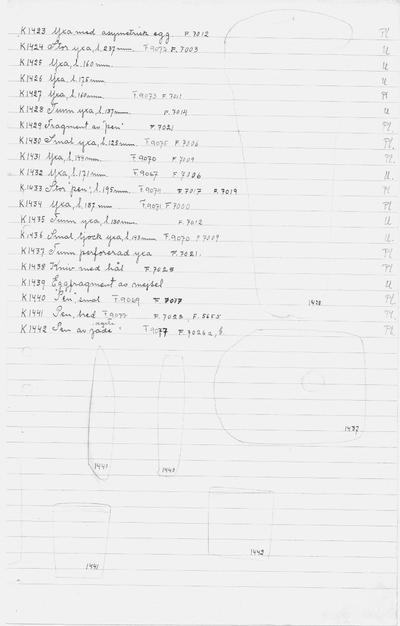 K1423 Yxa med asymetrisk egg. F.7012 Pl
K1424 Stor yxa, l. 237mm. T.9072 F.7003 U
K1425 Yxa, l. 160mm. U
K1426 Yxa, l. 175mm U
K1427 Yxa, l. 160mm T.9073 F.7011 Pl
K1428 Tunn yxa, l. 137mm F.7014 U
K1429 Fragment av "pen" F.7021 Pl.
K1430 Smal yxa, l. 123mm T.9075 F.7006 Pl.
K1431 Yxa, l. 144mm T.9070 F.7009 Pl.
K1432 Yxa, l. 171mm T.9067 F.7006 U.
K1433 Stor "pen", l. 195mm. T.9074 F.7017 F.7019 Pl.
K1434 Yxa, l. 187 mm T.9071 F.7000 Pl.
K1435 Tunn yxa, l. 130mm F.7012 U.
K1436 Smal tjock yxa, l. 143mm T.9070 F.7009 U.
K1437 Tunn perforerad yxa F.7021. Pl.
K1438 Kniv med hål F.7023 Pl.
K1439 Eggfragment av mejsel U
K1440 "Pen" smal T.9069 F.7017 Pl.
K1441 Pen, bred T.9077 F.7023, F.5655 Pl.
K1442 Pen av jade T.9077 F.7026 a, b. Pl.
1428
1437
1441
1440
1441
1442